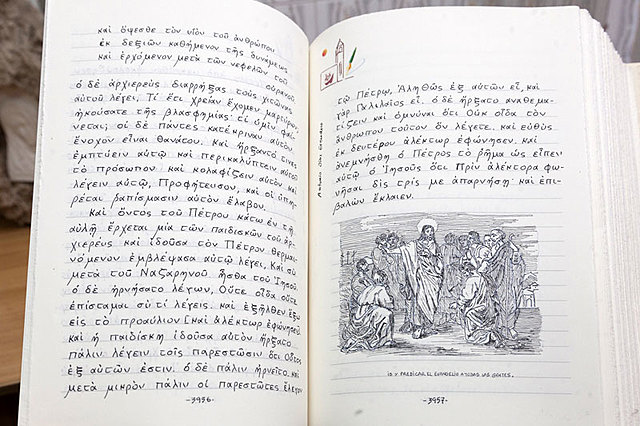 καὶ ὄψεσθε τὸν υἱὸν τοῦ ἀνθρώπου
ἐκ δεξιῶν καθήμενον τῆς δυνάμεως
καὶ ἐρχόμενον μετὰ τῶν νεφελῶν τοῦ
οὐρανοῦ
ὁ δὲ ἀρχιερεὺς διαρρήξας τοὺς χιτῶνας
αὐτοῦ λέγει, Τί ἔτι χρείαν ἔχομεν μαρτύρων;
ἠκούσατε τῆς βλασφημίας· τί ὑμῖν φαί-
νεται; οἱ δὲ πάντες κατέκριναν αὐτὸν
ἔνοχον εἶναι θανάτου. Καὶ ἤρξαντό τινες
ἐμπτύειν αὐτῷ καὶ περικαλύπτειν αὐτοῦ
τὸ πρόσωπον καὶ κολαφίζειν αὐτὸν καὶ
λέγειν αὐτῷ, Προφήτευσον, καὶ οἱ ὑπη-
ρέται ῥαπίσμασιν αὐτὸν ἔλαβον.
Καὶ ὄντος τοῦ Πέτρου κάτω ἐν τῇ
αὐλῇ ἔρχεται μία τῶν παιδισκῶν τοῦ ἀρ-
χιερέως καὶ ἰδοῦσα τὸν Πέτρον θερμαι-
νόμενον ἐμβλέψασα αὐτῷ λέγει, Καὶ σὺ
μετὰ τοῦ Ναζαρηνοῦ ἦσθα τοῦ Ἰησοῦ.
ὁ δὲ ἠρνήσατο λέγων, Οὔτε οἶδα οὔτε
ἐπίσταμαι σὺ τί λέγεις. καὶ ἐξῆλθεν ἔξω
εἰς τὸ προαύλιον [καὶ ἀλέκτωρ ἐφώνησεν]
καὶ ἡ παιδίσκη ἰδοῦσα αὐτὸν ἤρξατο
πάλιν λέγειν τοῖς παρεστῶσιν ὅτι Οὗτος
ἐξ αὐτῶν ἐστιν. ὁ δὲ πάλιν ἠρνεῖτο. καὶ
μετὰ μικρὸν πάλιν οἱ παρεστῶτες ἔλεγον
-3956-
τῷ Πέτρῳ, Ἀληθῶς ἐξ αὐτῶν εἶ, καὶ
γὰρ Γαλιλαῖος εἶ. ὁ δὲ ἤρξατο ἀναθεμα-
τίζειν καὶ ὀμνύναι ὅτι Οὐκ οἶδα τὸν
ἄνθρωπον τοῦτον ὃν λέγετε. καὶ εὐθὺς
ἐκ δευτέρου ἀλέκτωρ ἐφώνησεν. καὶ
ἀνεμνήσθη ὁ Πέτρος τὸ ῥῆμα ὡς εἶπεν
αὐτῷ ὁ Ἰησοῦς ὅτι Πρὶν ἀλέκτορα φω-
νῆσαι δὶς τρίς με ἀπαρνήσῃ· καὶ ἐπι-
βαλὼν ἔκλαιεν.
ID Y PREDICAR EL EVANGELIO A TODAS LAS GENTES.
-3957-